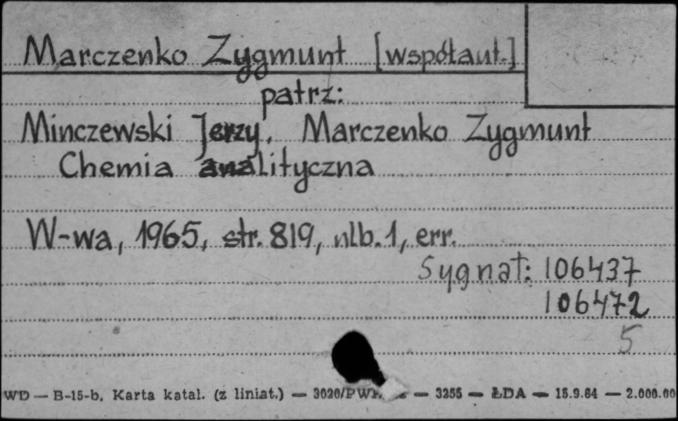 Marczenko Zygmunt [współaut.]
patrz:
Minczewski Jerzy, Marczenko Zygmunt
Chemia analityczna
W-wa, 1965, str. 819, nlb. 1, err.
Sygnat: 106437
106472
5
WD — B-15-b, Karta katal. (z liniat.) — 3020/PW — 3255 — ŁDA — 15.9.64 — 2.000.00